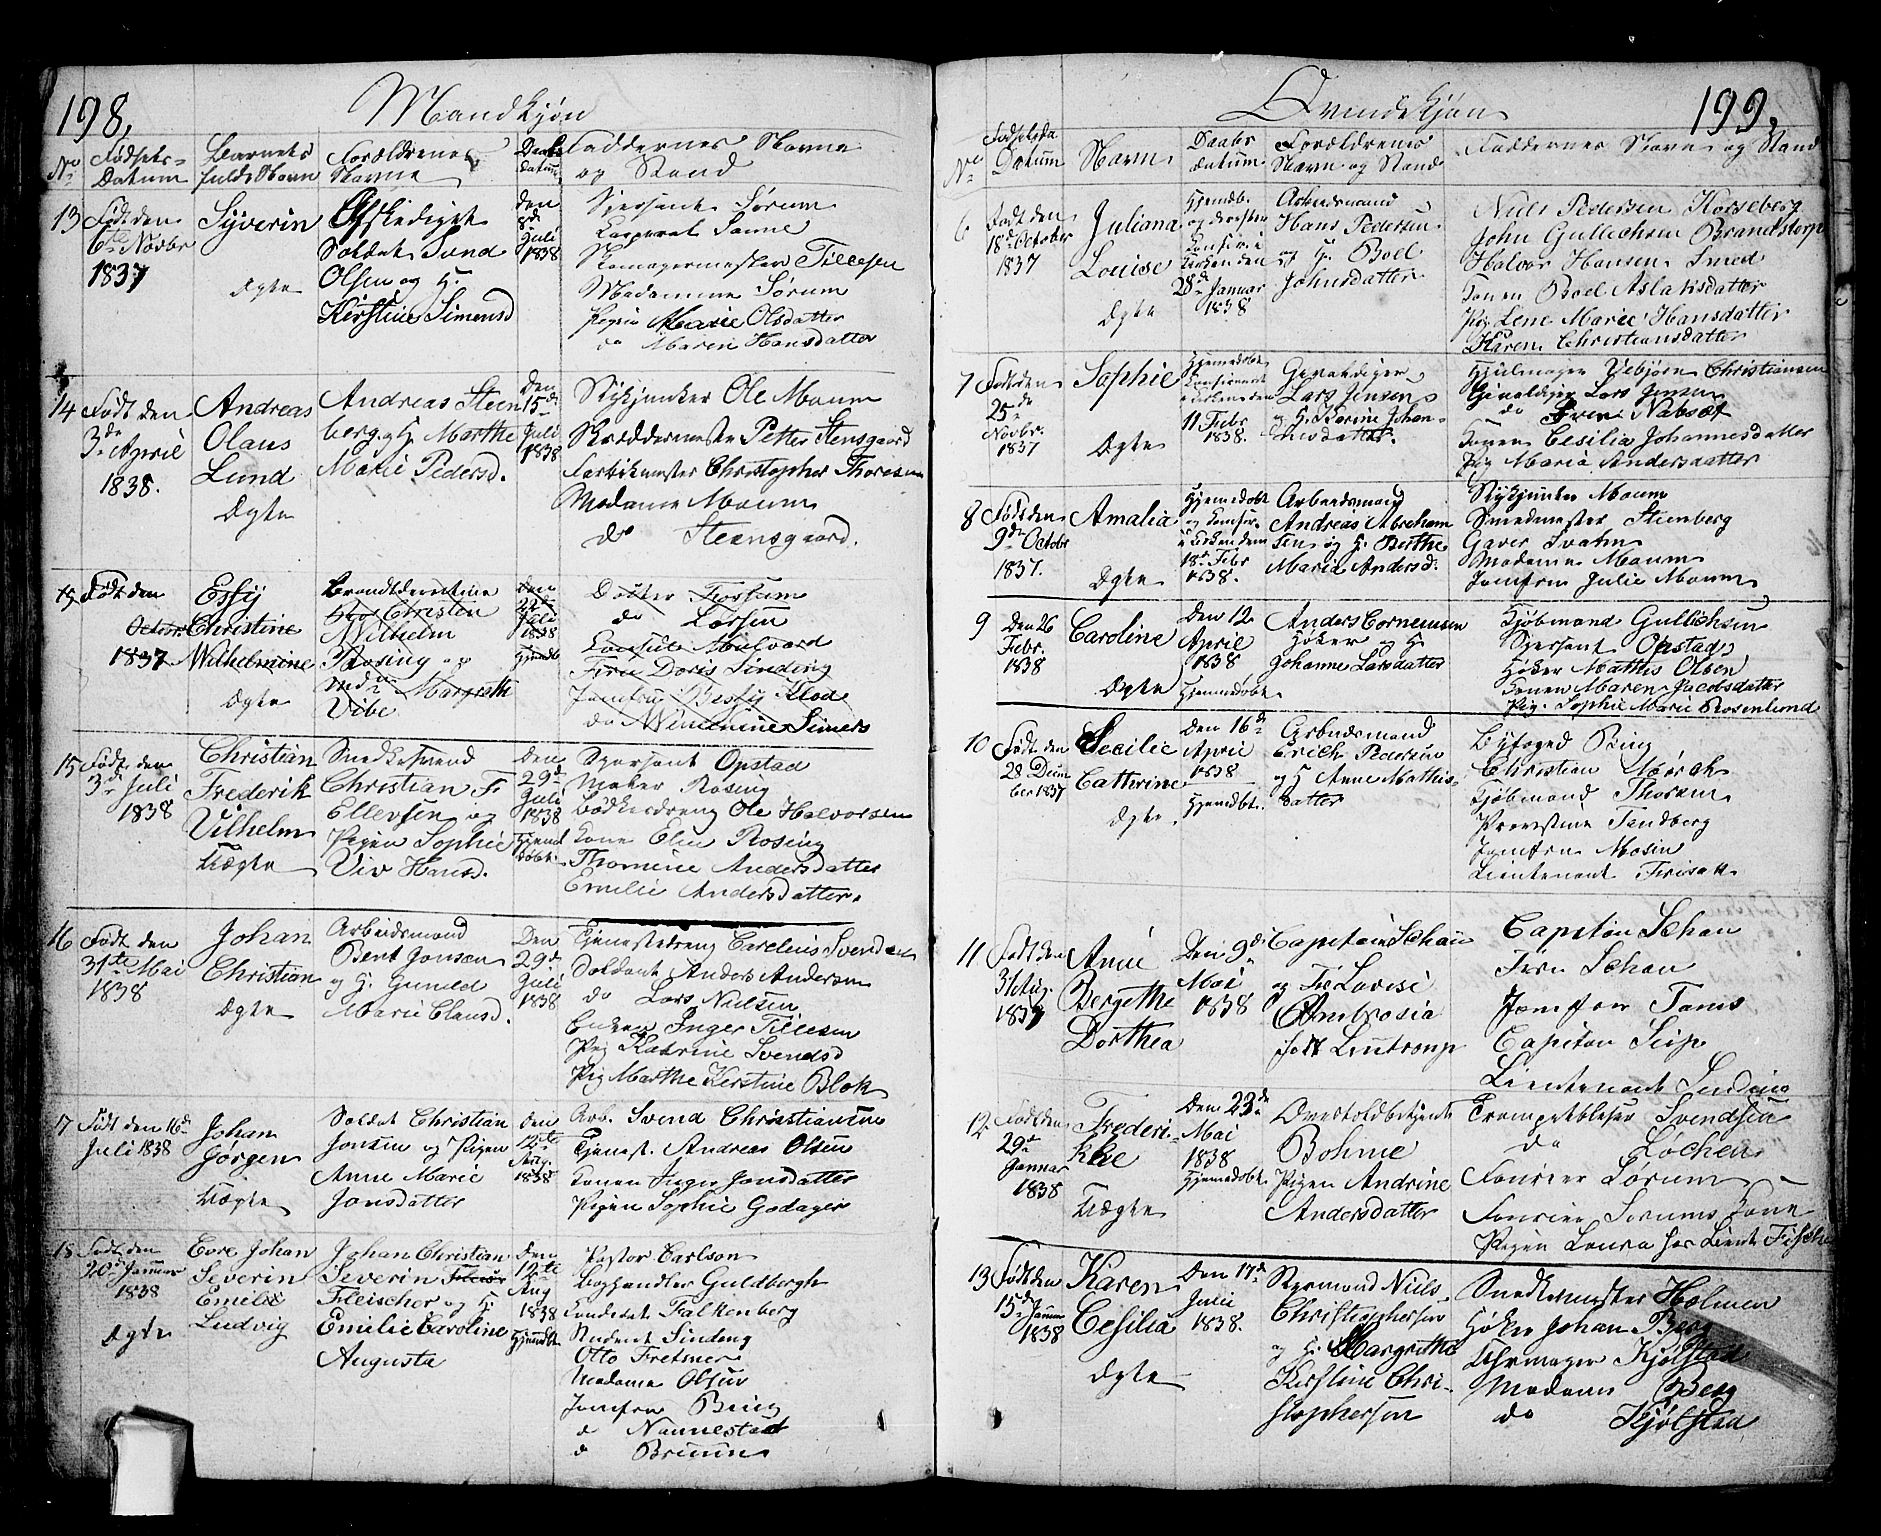 198,
Mandkjøn
No
Fødsels-
Datum
Barnets
fulde Navn
Forældrenes
Navne
Daabs
Datum
Faddernes Navne
og Stand
13
Født den
6te Novbr
1837
Syverin
Ægte
Afskediget
Soldat Svend
Olsen og H.
Kirstine Simensd
den
8de
Juli
1838
Sjersant Sørum
Corporal Sanne
Skomagermester Tillesen
Madamme Sørum
Pigen Marie Olsdatter
do Maren Hansdatter
14
Født den
3de April
1838.
Andreas
Olaus
Lund
Ægte
Andreas Steen
berg og H. Marthe
Marie Pedersd.
Den
15de
Juli
1838
Stykjunker Ole Maum
Skreddermester Petter Stensgaard
Farvikmester Christopher Thoresen
Madame Maum
Do Steensgaard.
15
Født den
Octbr
1837
Essy
Christine
Wilhelmine
Ægte
Christen
Wilhelm
Rosing og
Margrethe
Vibe
Den
22de
Juli
1838
Hjemdbt
Docter Frostum
do Larsen
Frue Doris Sinding
Jomfru Bessy Klod
do Wilhelmine Simers
15
Født den
3de Juli
1838
Christian
Frederik
Vilhelm
Uægte
Snedkersvend
Christian F
Ellevsen og
Pigen Sophie
Siv Hansd.
Den
29de
Juli
1838
Hjemd
døbt
Sjersant Opstad
Maker Rosing
Bødkerdreng Ole Halvorsen
Kone Elen Rosing
Thomine Andersdatter
Emilie Andersdatter.
16
Født den
31te Mai
1838
Johan
Christian
Ægte
Arbeidsmand
Bent Jonsen
og H. Gunild
Marie Clausd.
Den
29de
Juli
1838
Tjenestedreng Carelius Svendsen
Soldat Anders Andersen
do Lars Nielsen
Enken Inger Tillesen
Pig Katrine Svendsd
Pig Marthe Kerstine Blok
17
Født den 16de
Juli 1838
Johan
Jørgen
Uægte
Soldat Christian
Jonsen og Pigen
Anne Marie
Jonsdatter
Den
12te
Aug.
1838
Arb. Svend Christiansen
Tjenest. Andreas Olsen
Konen Inger Jonsdatter
Pigen Sophie Godager
18
Født den
20de Januar
1838
Ægte
Eore Johan
Severin
Emilie
Ludvig
Johan Christian
Severin
Fleischer og H.
Emilie Caroline
Augusta
Den
12te
Aug
1838
Hjemdbt
Pastor Carlson
Boghandler Guldbergh
Candidat Falkenberg
Student Sinding
Otto Fretmer
Madame Olsen
Jomfru Bing
do Nannestad
do Bruun
199,
Qvindekjøn
No
Fødselsda
Datum
Navn
Daabs
datum
Forældrenes
Navn og Stand
Faddernes Navn og Stand
6
Født den
18de October
1837
Juliana
Louise
Ægte
Hjemdb
og derefter
Confir. i
Kirken den
28de Januar
1838
Arbeidsmand
Hans Pedersen
og H. Boel
Johnsdatter
Niels Pedersen Korseberg
John Gullichsen Brandstorp
Halvor Hansen Smed
Konen Boel Aslaksdatter
Pig Lene Marie Hansdatter
Karen Christiansdatter
7
Født den
25de
Novbr.
1837
Sophie
Ægte
Hjemedøbt
Confirmert
i Kirken den
11 Febr
1838.
Gevaldiger
Lars Jensen
og H. Karine Johan-
nesdatter.
Hjulmager Vebjørn Christiansen
Gevaldiger Lars Jensen
do Sven Nabsøt
Konen Cesilia Johannesdatter
Pig Maria Andersdatter
8
Født den
9de Octobr
1837.
Amalia
Ægte
Hjemmedøbt
og Confir.
i Kirken den
18de Febr
1838.
Arbeidsmand
Andreas Abraham
sen og H. Berthe
Maria Andersd.
Stykjunker Maum
Smedmester Stenberg
Garver Svahn
Madamme Maum
Jomfru Julie Maum
9
Den 26
Febr.
1838
Caroline
Ægte
Den 12
April
1838
Hjemmedøbt
Anders Corneliusen
Høker og H
Johanne Larsdatter
Kjøbmand Gullichsen
Sjersant Opstad
Høker Mathis Olsen
Konen Maren Jacobsdatter
Pig. Sophie Marie Rosenlund
10
Født den
28 Decem
ber 1837
Secilie
Cathrine
Ægte
Den 16de
April
1838
Hjemdbt.
Arbeidsmand
Erich Pedersen
og H Anne Mathis-
datter
Byfoged Bing
Christian Mørch
Kjøbmand Thoresen
Provstinne Tandberg
Jomfru Mosin
Lieutenant Frisak
11
Født den
31 Aug.
1837
Anne
Bergithe
Dorthea
Den 9de
Mai
1838
Capitain Schau
og Frue Lovise
Ambrosia
født Leutronp
Capitain Schau
Frue Schau
Jomfrue Tams
Capitain Seip
Lieutenant Sinding
12
Født den
29de
Januar
1838
Frederi-
kke
Uægte
Den 23de
Mai
1838
Hjemmedøbt.
Overtoldbetjent
Bohme
Pigen Andrine
Andersdatter
Trompetblæser Svendsen
do Løchen
Fourier Sørum
Fourier Sorums Kone
Pigen Laura hos Lieut Fische
13
Født den
15de Januar
1838
Karen
Cesilia
Ægte
Den 17de
Julie
1838.
Styrmand Niels
Christophersen
og H. Margrethe
Kirstine Chri-
stophersen
Snedkermester Holmen
Høker Johan Berg
Uhrmager Kjølstad
Madame Berg
do Kjølstad